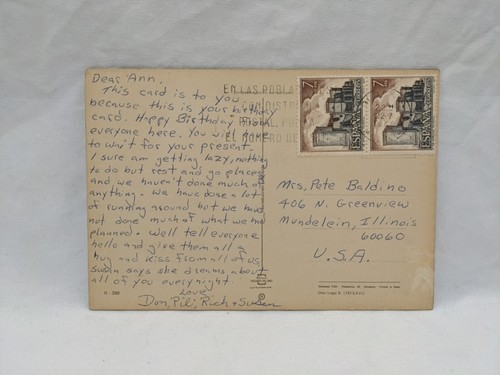 Dear Ann,
This card is to you
because this is your birthday
card. Happy Birthday from
everyone here. You will have
to wait for your present.
I sure am getting lazy, nothing
to do but rest and go places
and we haven't done much of
anything. We have done a lot
of running around but we have
not done much of what we had
planned. Well tell everyone
hello and give them all a
hug and kiss from all of us,
Susan says she dreams about
all of you every night.
Love
Don, Pil, Rich + Susan
EN LAS POBLA
DISTRI
EL NUMERO DE
7
ESPAÑA
CORREOS
7
ESPAÑA
CORREOS
Mrs. Pete Baldino
406 N. Greenview
Mundelein, Illinois
60060
U.S.A.